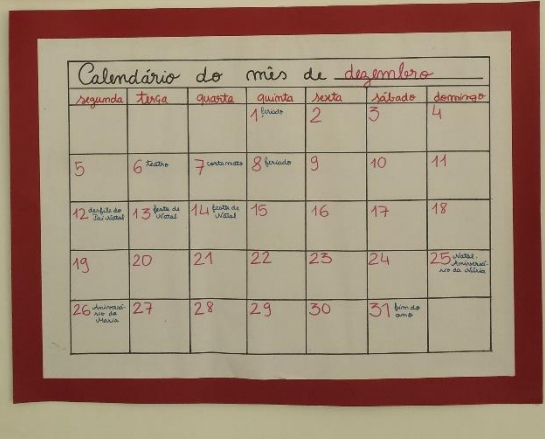 Calendário do mês de dezembro
segunda terça quarta quinta sexta sábado domingo
1 feriado 2 3 4
5 6 teatro 7 corta mato 8 feriado 9 10 11
12 desfile do Pai Natal 13 festa de Natal 14 festa de Natal 15 16 17 18
19 20 21 22 23 24 25 Natal. Aniversá-
rio da Núria
26 Aniversá-
rio da Maria 27 28 29 30 31 fim do ano